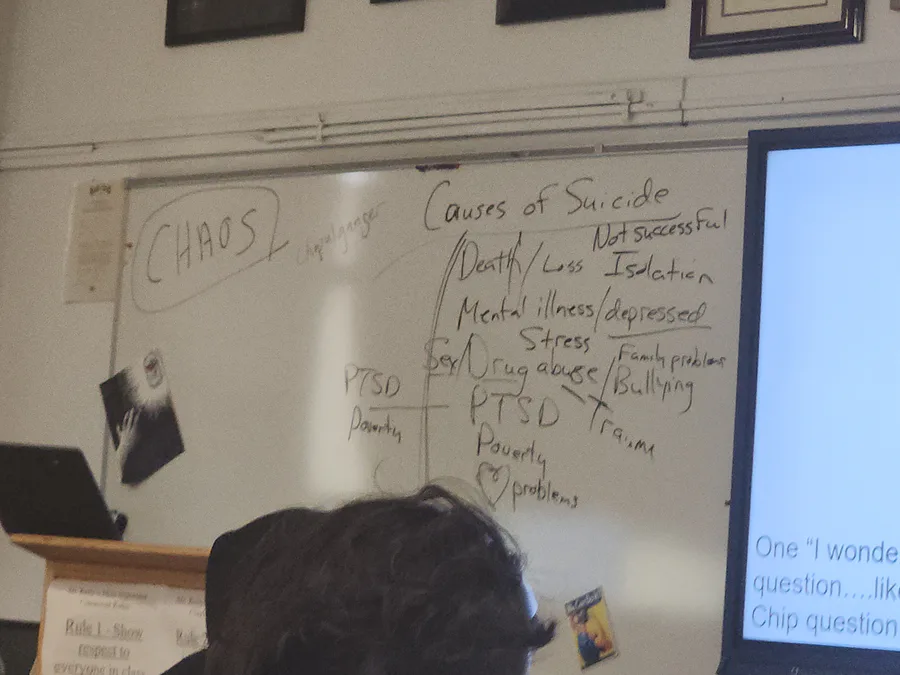 CHAOS
Causes of Suicide
Not successful
Death/Loss Isolation
Mental illness/depressed
Stress
Sex/Drug abuse/
Family problems
Bullying
PTSD
Trauma
Poverty
♡ problems
PTSD
Poverty
One "I wonde
question....like
Chip question
Rule 1 - Show
respect to
everyone in class
Rule 2